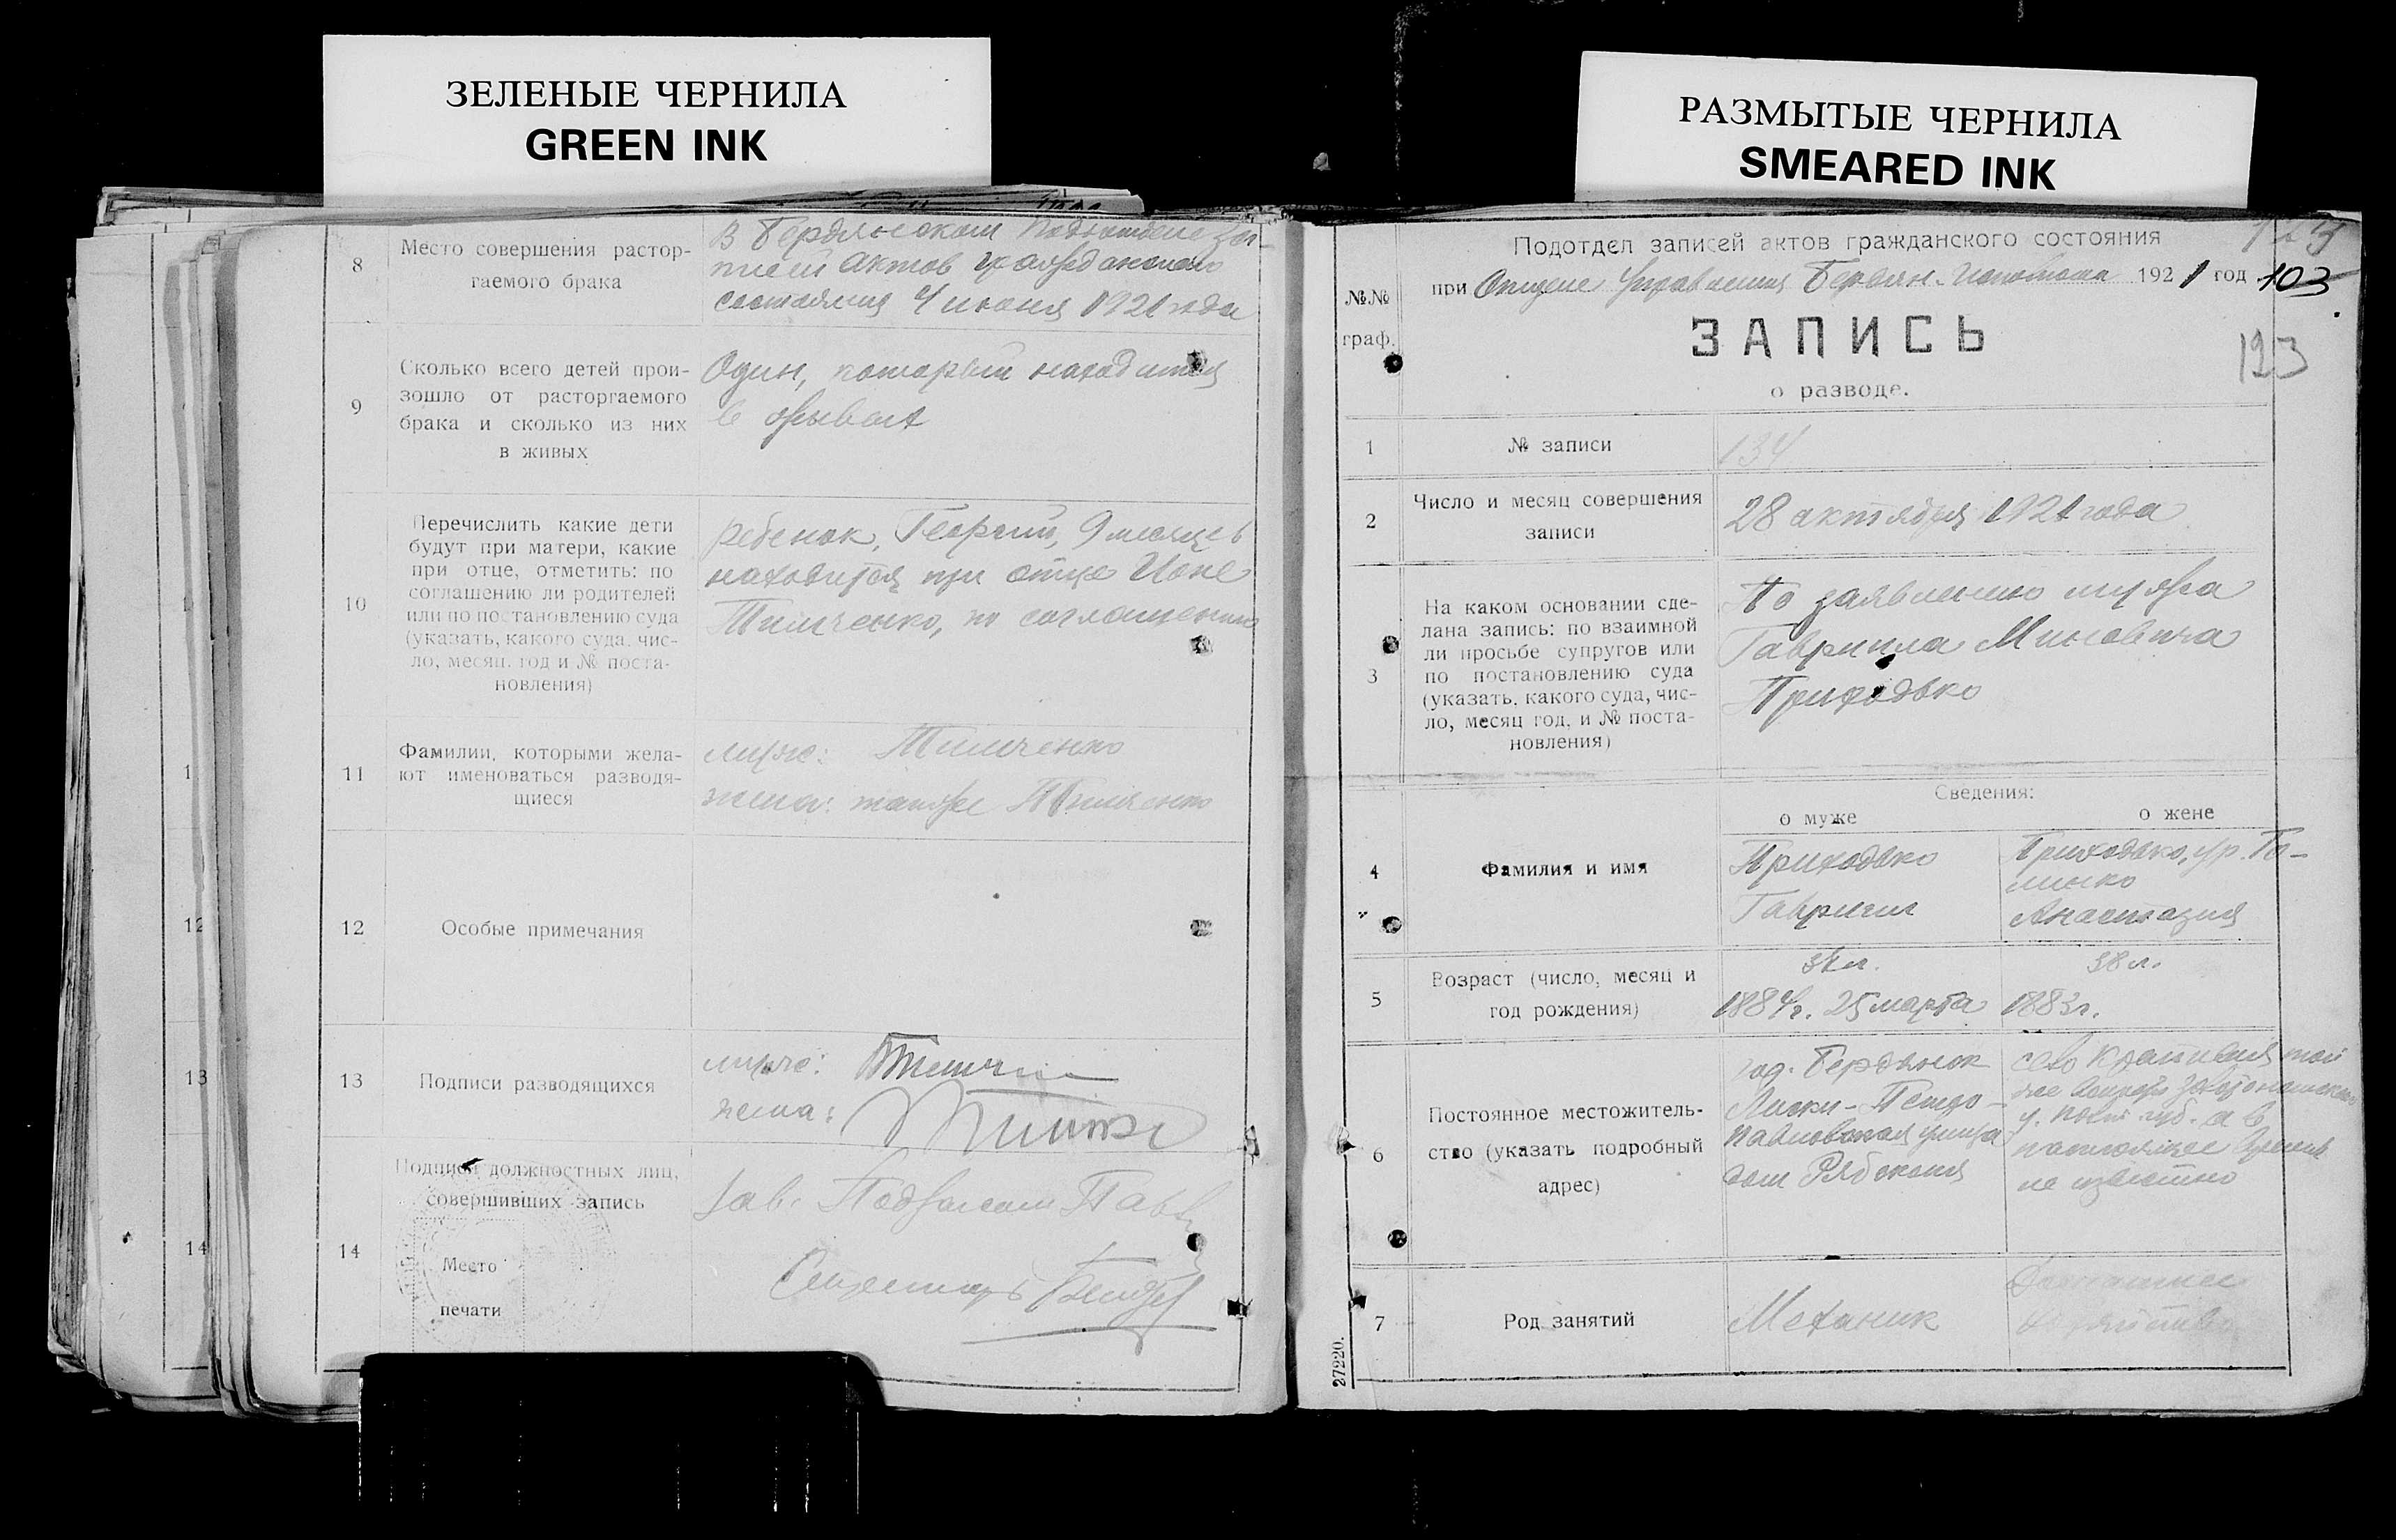 ЗЕЛЕНЫЕ ЧЕРНИЛА
GREEN INK
РАЗМЫТЫЕ ЧЕРНИЛА
SMEARED INK
1
12
13
14
8
Место совершения растор-
гаемого брака
В Бердянском Подотделе за-
писей актов гражданского
состояния 4 июня 1921 года
9
Сколько всего детей прои-
зошло от расторгаемого
брака и сколько из них
в живых
Один, который находится
в живых
10
Перечислить какие дети
будут при матери, какие
при отце, отметить: по
соглашению ли родителей
или по постановлению суда
(указать, какого суда, чис-
ло, месяц, год и № поста-
новления)
ребенок, Георгий, 9 месяцев
находится при отце Ионе
Тимченко, по соглашению
11
Фамилии, которыми жела-
ют именоваться разводя-
щиеся
муж: Тимченко
жена: также Тимченко
12
Особые примечания
13
Подписи разводящихся
муж:
жена:
14
Подписи должностных лиц,
совершивших запись
Место
печати
Зав. Подзагсом
Секретарь
123
Подотдел записей актов гражданского состояния
№№
граф.
при Отделе Управления Бердян. Исполкома 1921 год 103
ЗАПИСЬ
123
о разводе.
1
№ записи
134
2
Число и месяц совершения
записи
28 октября 1921 года
3
На каком основании сде-
лана запись: по взаимной
ли просьбе супругов или
по постановлению суда
(указать, какого суда, чис-
ло, месяц год, и № поста-
новления)
По заявлению мужа
Гавриила Миновича
Приходько
Сведения:
о муже
о жене
4
Фамилия и имя
Приходько
Гавриил
Приходько, ур.
Анастазия
5
Возраст (число, месяц и
год рождения)
37 л.
1884г. 25 марта
38 л.
1883г.
6
Постоянное местожитель-
ство (указать подробный
адрес)
гор. Бердянск
Лиски-Петро-
павловская улица
дом Рябоконя
село
у. губ. а в
настоящее время
не известно
7
Род занятий
Механик
Домашнее
хозяйство
27220.